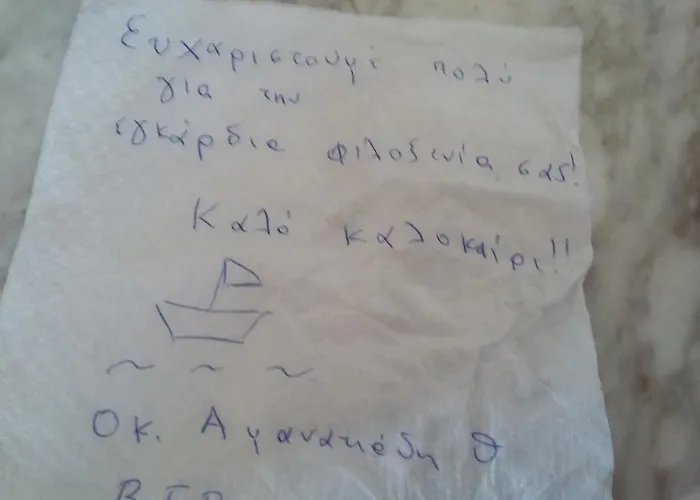 Ευχαριστούμε πολύ
για την
εγκάρδια φιλοξενία σας!
Καλό καλοκαίρι!!
Οκ.